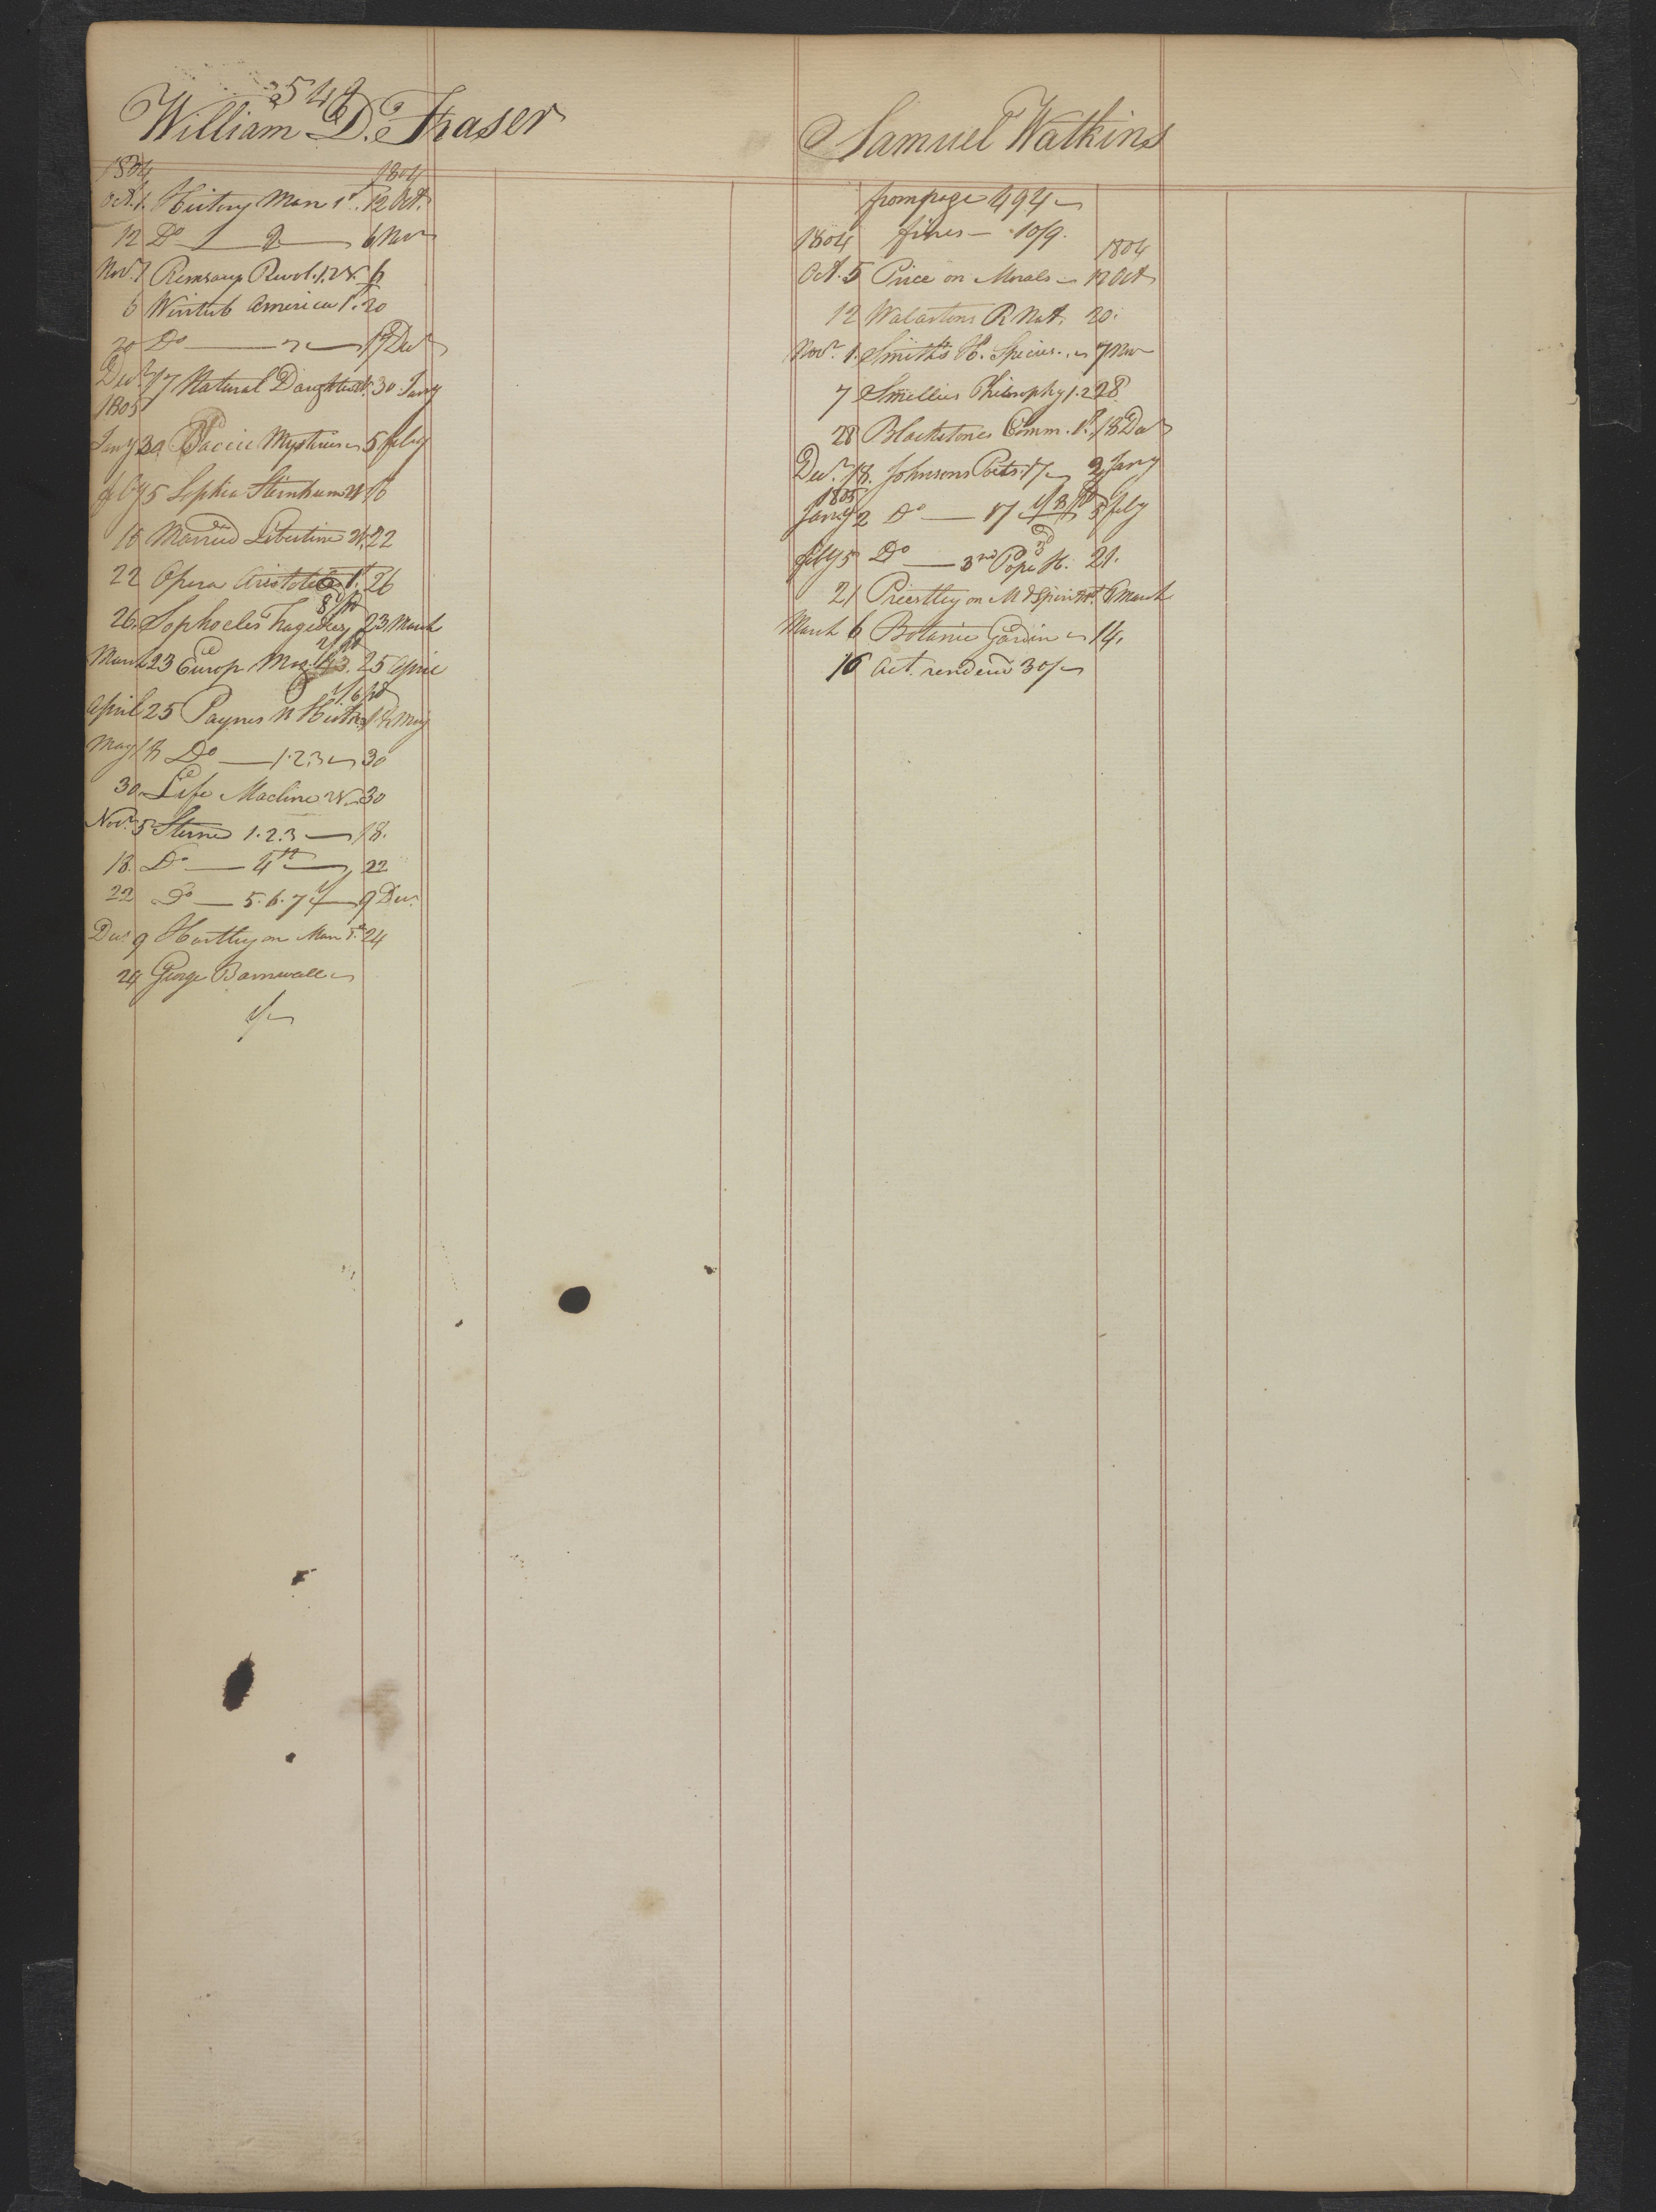 542
William D. Fraser
1804 1804
Oct. 1. History Man 1st. 12 Oct.
12 Do 2 6 Nov
Nov. 1 Ramsays Revol. 1. 2d. 6
6 Winterb America 1st. 20
20 Do 17 Decr
Decr 17 Natural Daughter 30 Jany
1805
Jany 30 Mysteries 5 feby
feby 5 Sophia Sternheim 16
16 Married Libertine 22
22 Opera Aristoteles 1st. 26
26. Sophocles Tragedies 23 March
March 23 Europ. Mag. 43. 25 April
April 25 Paynes N History 18 May
May 18 Do 1.2.3 30
30. Life Macline 30
Novr. 5 Sterne 1.2.3 18.
18. Do 4th 22
22 Do 5.6.7 9 Decr.
Decr 9 Hartley on Man 1st 24
24 George Barnwell
1/-
Samuel Watkins
from page 494
fines — 10/9.
1804 1804
Oct. 5 Price on Morals 12 Oct
12 Walastons R Nat. 20.
Novr. 1. Smith's H. Species. 7 Nov
7 Smellies Philosophy 1. 2 28.
28 Blackstones Comm. 1st. 18 Dec
Decr. 18. Johnsons Poets. 2 Jany
1805
Jany 2 Do 5 feby
feby 5 Do 3rd Pope H. 21.
21 Priestley on M & Spirit 6 March
March 6 Botanic Garden 14.
16 Act. rendered 30/-